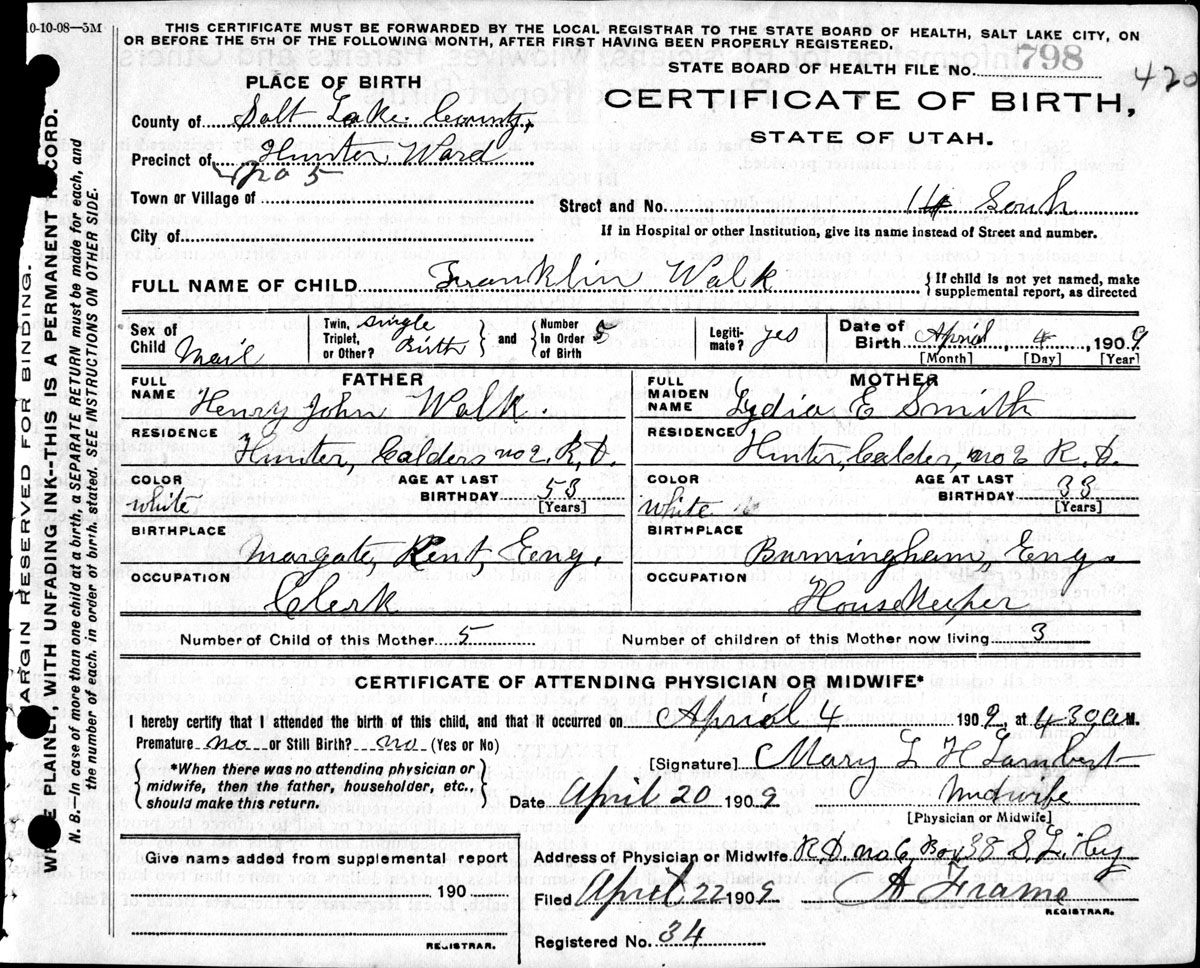 10-10-08—5M
THIS CERTIFICATE MUST BE FORWARDED BY THE LOCAL REGISTRAR TO THE STATE BOARD OF HEALTH, SALT LAKE CITY, ON
OR BEFORE THE 5TH OF THE FOLLOWING MONTH, AFTER FIRST HAVING BEEN PROPERLY REGISTERED.
STATE BOARD OF HEALTH FILE NO. 798
420
PLACE OF BIRTH
CERTIFICATE OF BIRTH,
STATE OF UTAH.
County of Salt Lake County,
Precinct of Hunter Ward
no 5
Town or Village of
Street and No. 14 South
City of
If in Hospital or other Institution, give its name instead of Street and number.
FULL NAME OF CHILD Franklin Walk { If child is not yet named, make
supplemental report, as directed
Sex of Child Mail
Twin, Triplet, or Other? single Birth } and { Number In Order of Birth 5
Legitimate? yes
Date of Birth Aprial 4, 1909
[Month] [Day] [Year]
FATHER
FULL NAME Henry John Walk.
RESIDENCE
Hunter, Calders no 2. R. D.
COLOR white AGE AT LAST BIRTHDAY 53 [Years]
BIRTHPLACE
Margate, Kent, Eeng.
OCCUPATION
Clerk
MOTHER
FULL MAIDEN NAME Lydia E Smith
RESIDENCE
Hunter, Calder, no 2 R. D.
COLOR white AGE AT LAST BIRTHDAY 33 [Years]
BIRTHPLACE
Burmingham, Eng.
OCCUPATION
Housekeeper
Number of Child of this Mother 5 Number of children of this Mother now living 3
CERTIFICATE OF ATTENDING PHYSICIAN OR MIDWIFE*
I hereby certify that I attended the birth of this child, and that it occurred on Aprial 4 1909, at 430 a M.
Premature no or Still Birth? no (Yes or No)
[Signature] Mary L H Lambert
{ *When there was no attending physician or
midwife, then the father, householder, etc.,
should make this return. }
Date April 20 1909 Midwife
[Physician or Midwife]
Give name added from supplemental report
190
REGISTRAR.
Address of Physician or Midwife R.D. no 6, Box 38 S. L.
Filed April 22 1909 A Frame
REGISTRAR.
Registered No. 34
MARGIN RESERVED FOR BINDING.
WRITE PLAINLY, WITH UNFADING INK--THIS IS A PERMANENT RECORD.
N. B.—In case of more than one child at a birth, a SEPARATE RETURN must be made for each, and
the number of each, in order of birth, stated. SEE INSTRUCTIONS ON OTHER SIDE.